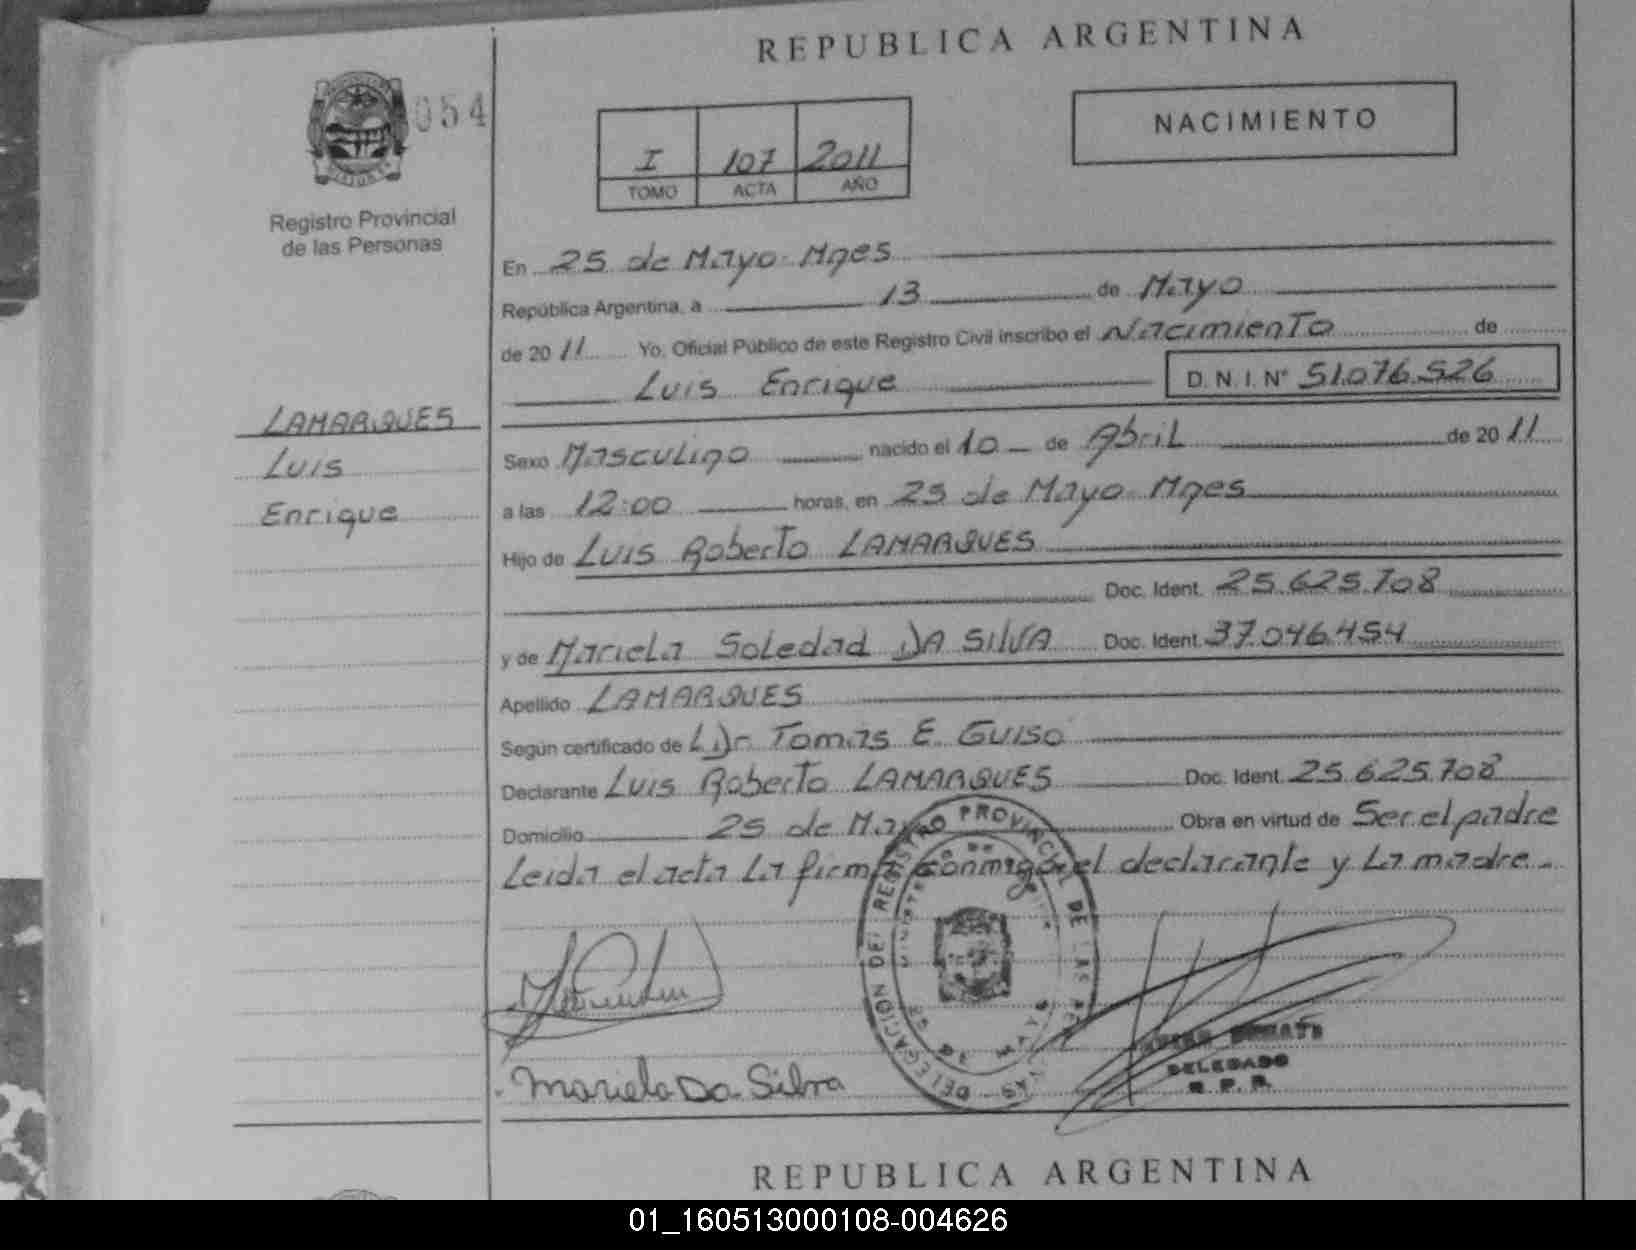 REPUBLICA ARGENTINA
054
NACIMIENTO
I 107 2011
TOMO ACTA AÑO
Registro Provincial
de las Personas
En 25 de Mayo Mnes
República Argentina, a 13 de Mayo
de 2011 Yo, Oficial Público de este Registro Civil inscribo el Nacimiento de
Luis Enrique D. N. I. Nº 51.076.526
LAMARQUES
Luis
Enrique
Sexo Masculino nacido el 10 de Abril de 2011
a las 12:00 horas, en 25 de Mayo Mnes
Hijo de Luis Roberto LAMARQUES
Doc. Ident. 25.625.708
y de Mariela Soledad DA SILVA Doc. Ident. 37.046.454
Apellido LAMARQUES
Según certificado de Dr Tomás E. Guiso
Declarante Luis Roberto LAMARQUES Doc. Ident. 25.625.708
Domicilio 25 de Mayo Obra en virtud de Ser el padre
Leida el acta la firma conmigo el declarante y la madre
DELEGACION DEL REGISTRO PROVINCIAL DE LAS
25 DE MAYO
Mariela Da Silva
DELEGADO
R. P. P.
REPUBLICA ARGENTINA
01_160513000108-004626